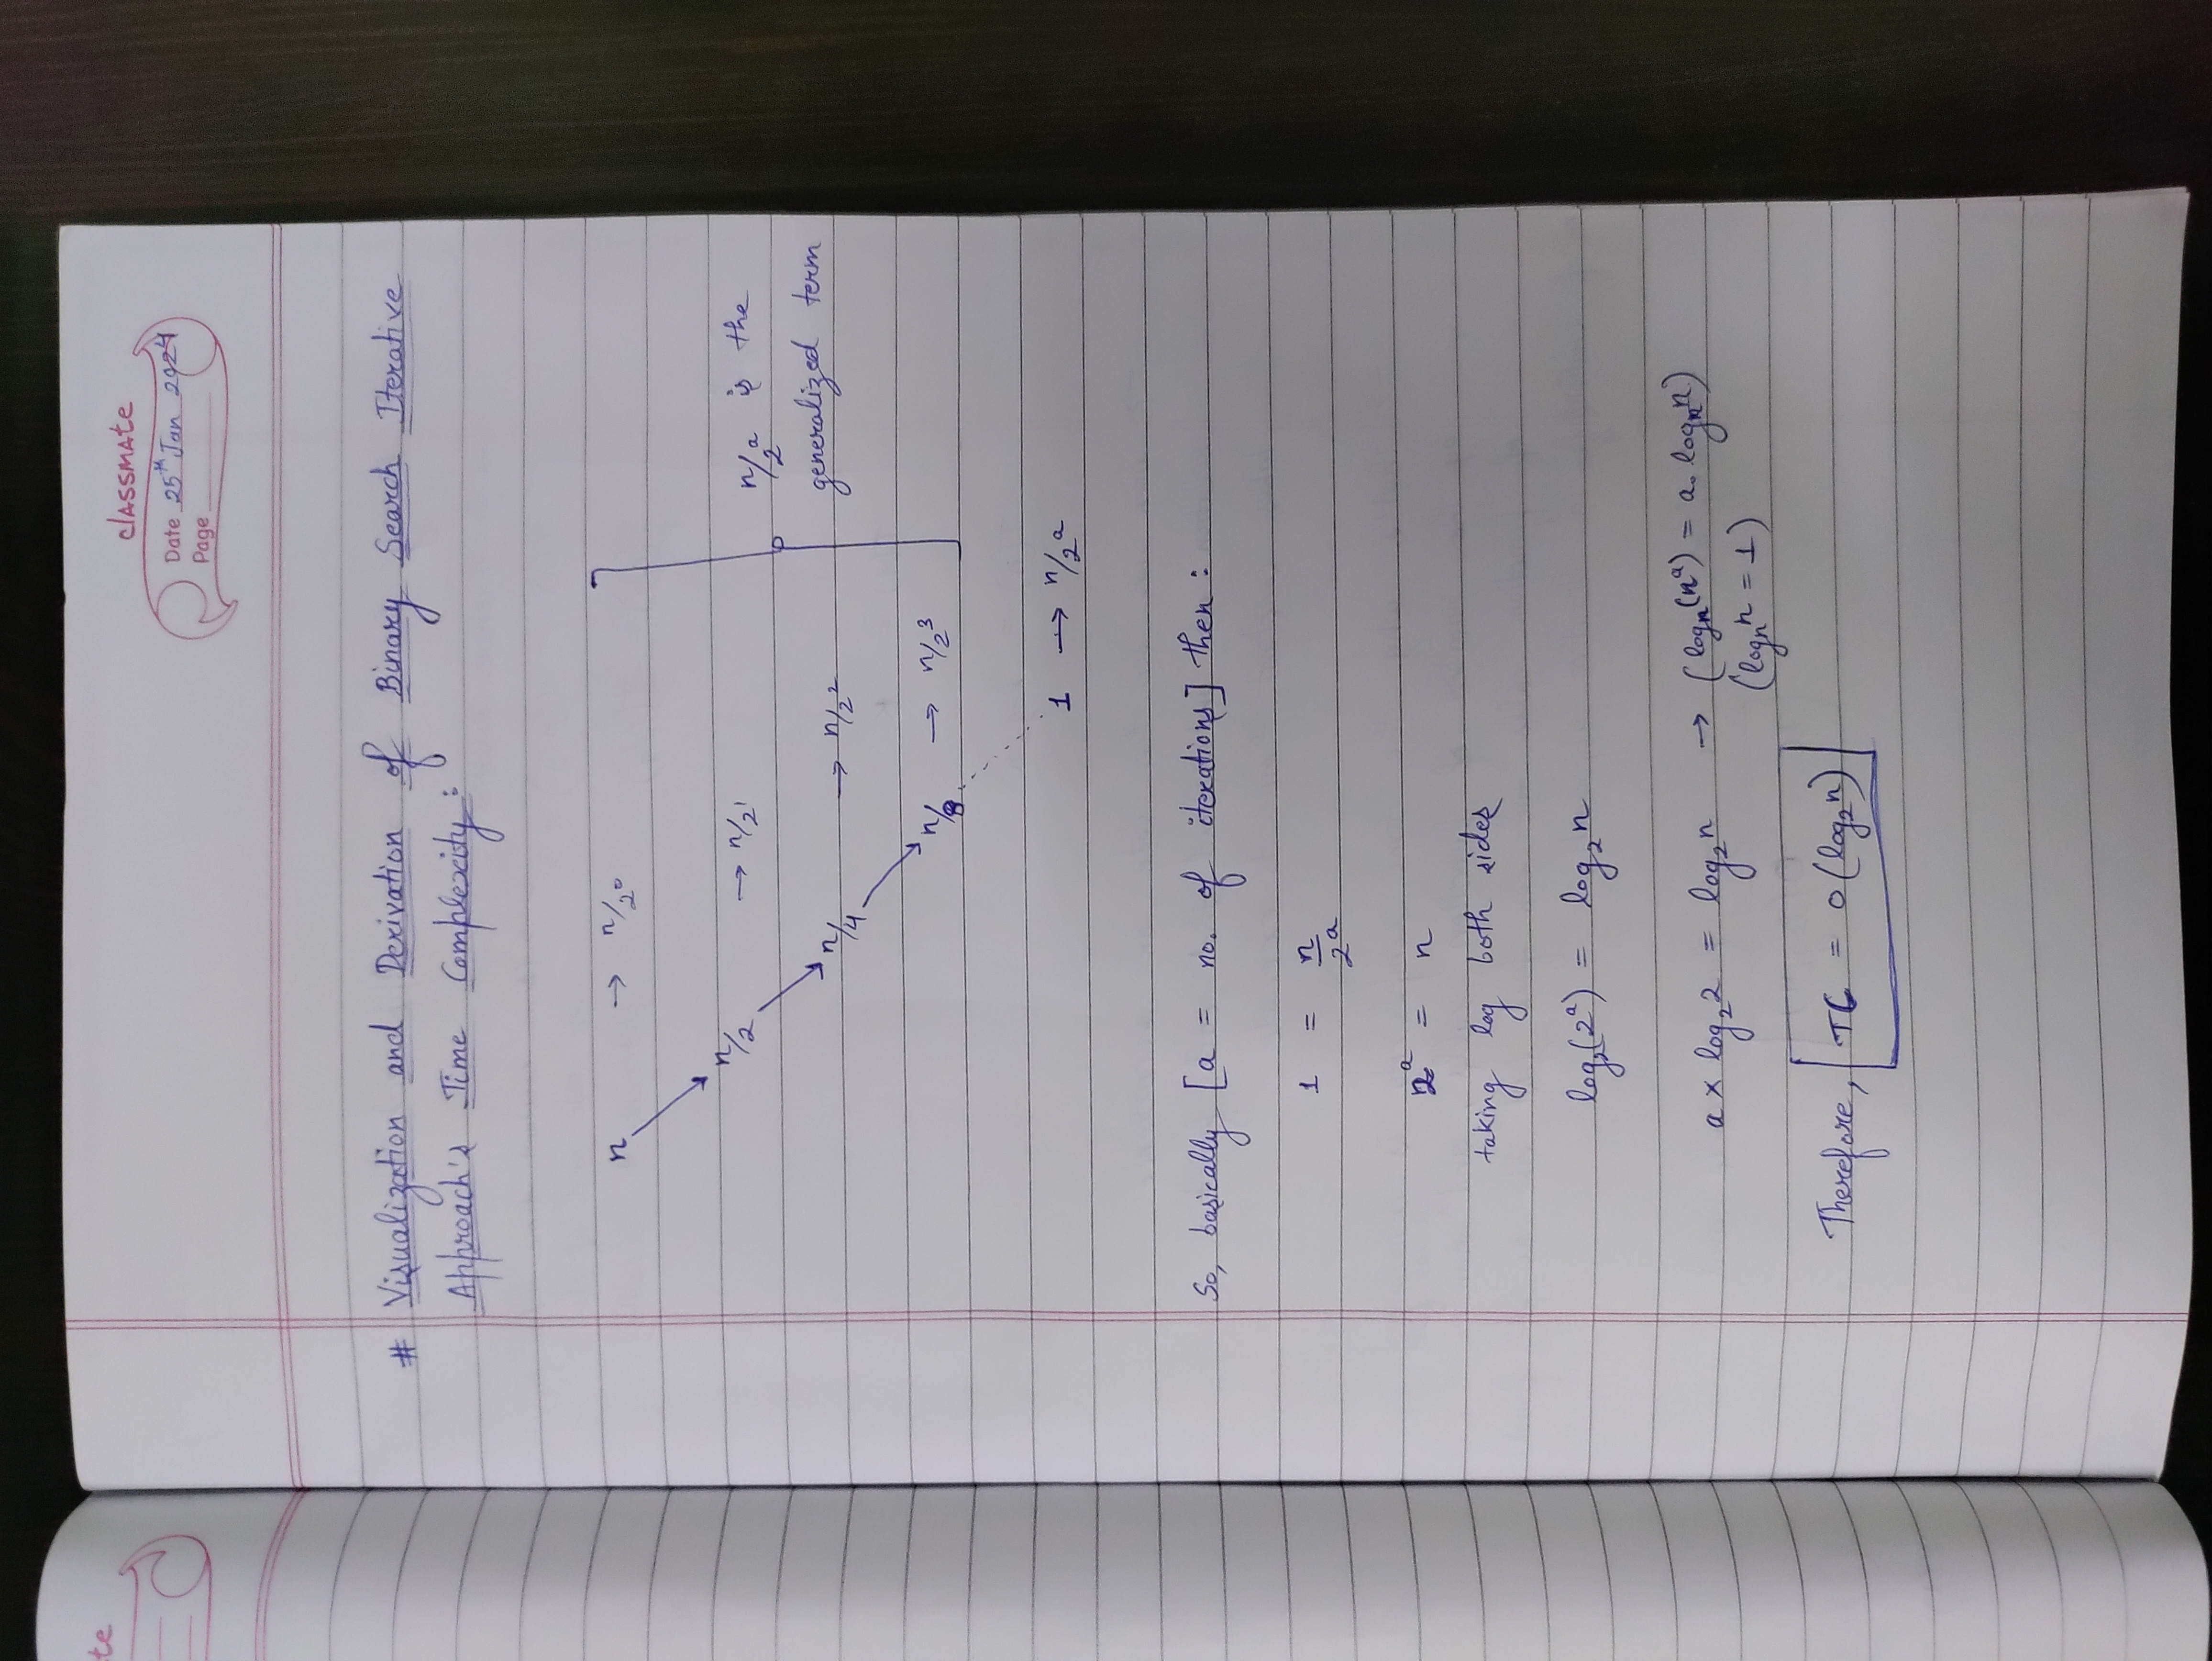 te
classmate
Date 25th Jan 2024
Page
# Visualization and Derivation of Binary Search Iterative
Approach's Time Complexity:
n → n/2⁰
n/2 → n/2¹
n/4 → n/2²
n/8 → n/2³
n/2ᵃ is the
generalized term
1 → n/2ᵃ
So, basically [a = no. of iterations] then :
1 = n/2ᵃ
2ᵃ = n
taking log both sides
log₂(2ᵃ) = log₂n
a × log₂2 = log₂n → (logₙ(nᵃ) = a. logₙn)
(logₙn = 1)
Therefore, TC = O(log₂n)